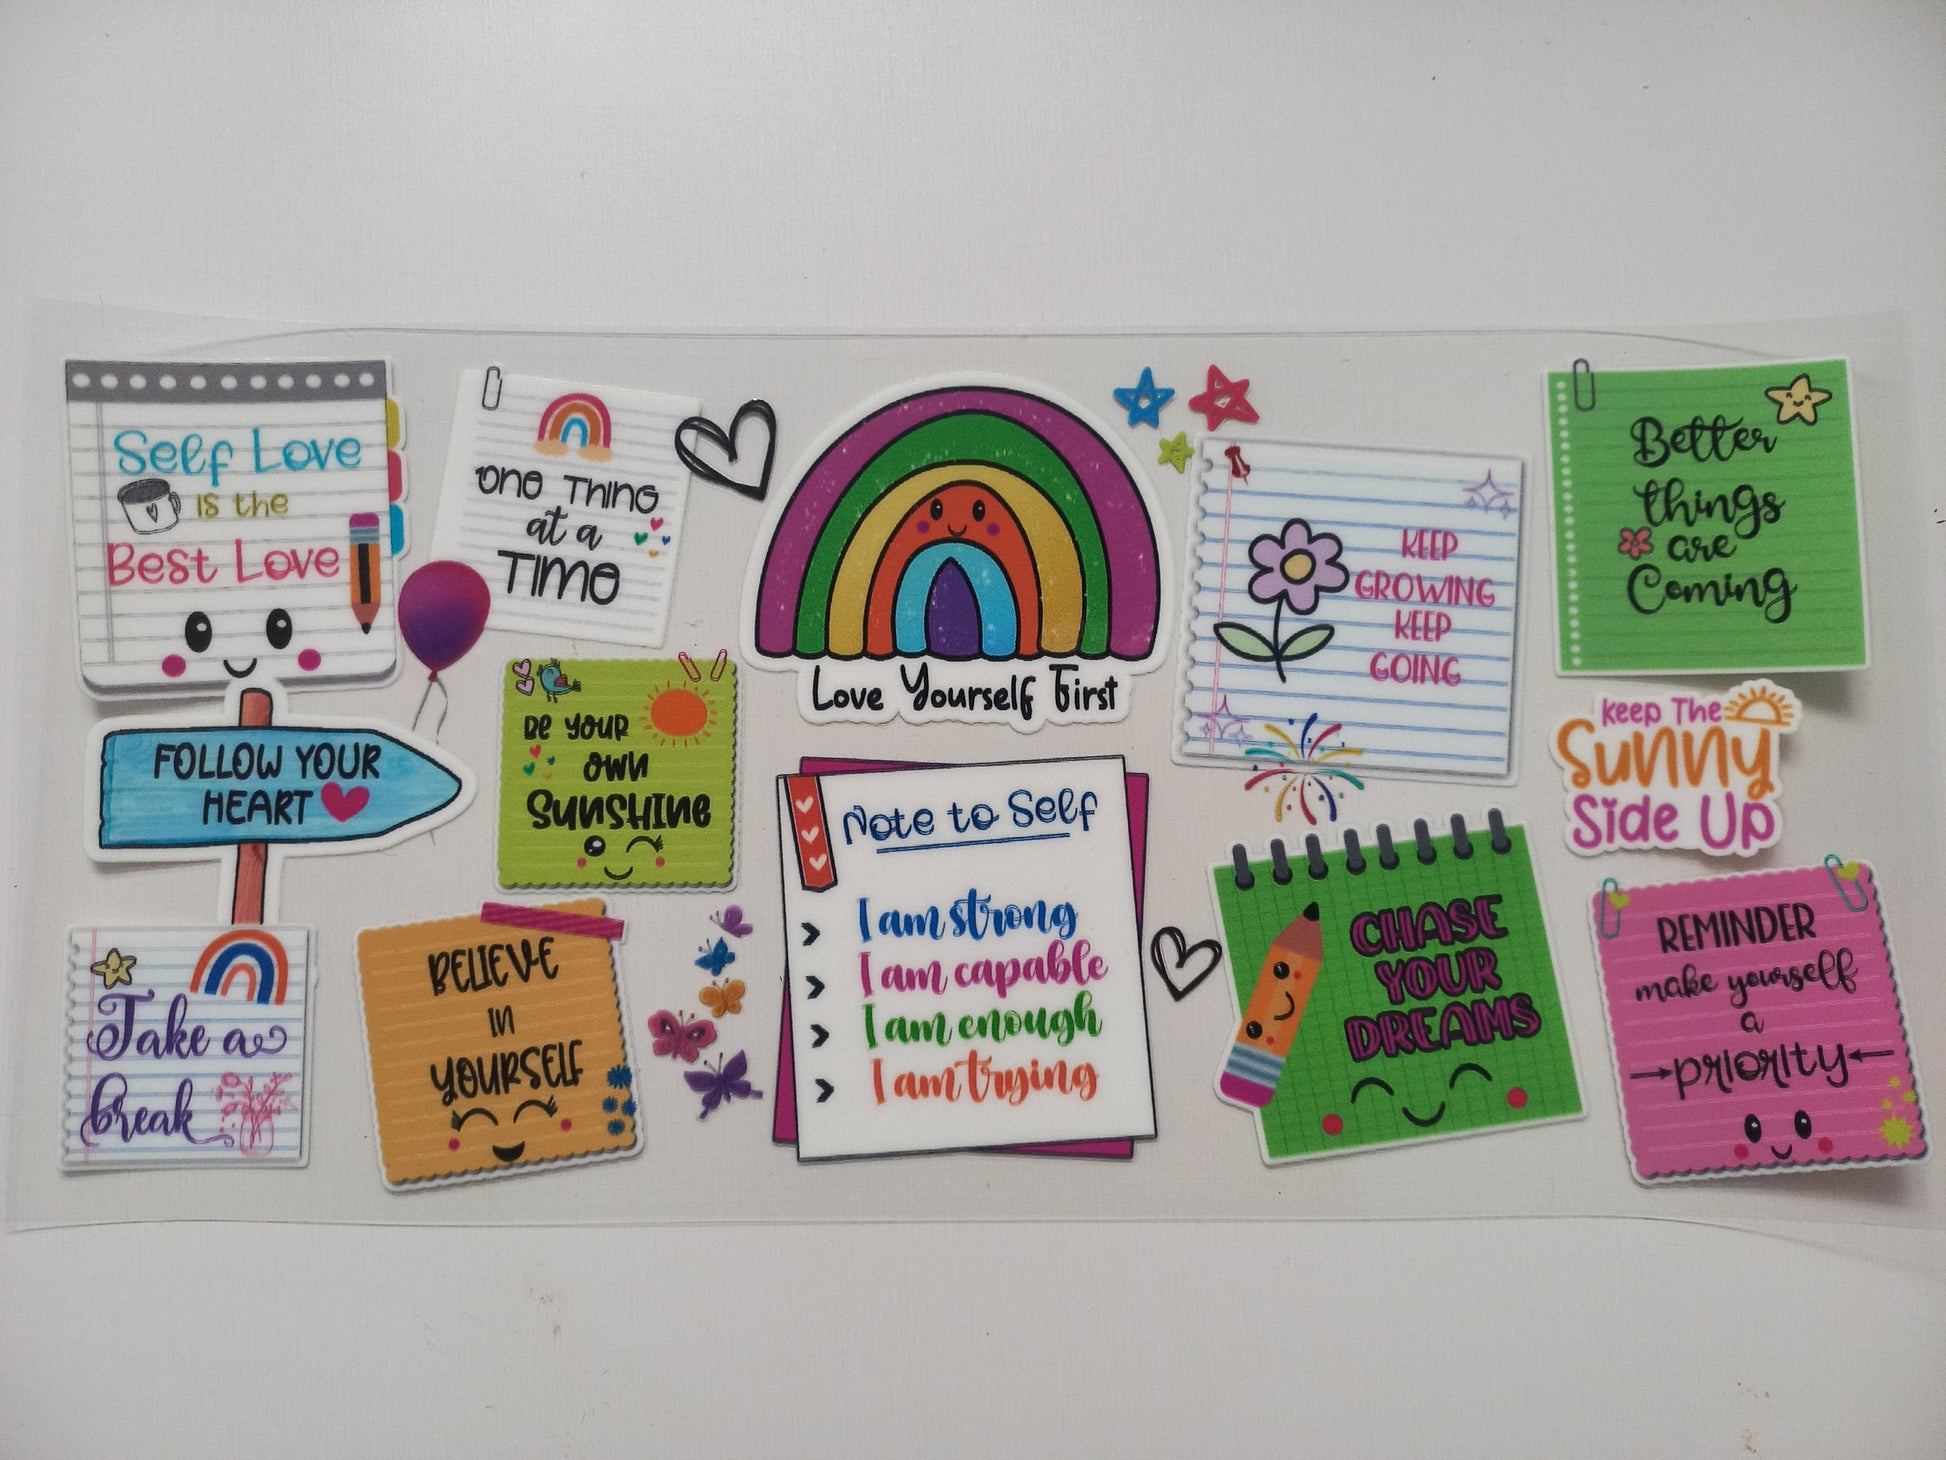 Self Love
is the
Best Love
One Thing
at a
Time
Love Yourself First
KEEP
GROWING
KEEP
GOING
Better
things
are
Coming
FOLLOW YOUR
HEART
BE YOUR
OWN
SUNSHINE
Keep The
Sunny
Side Up
Note to Self
I am strong
I am capable
I am enough
I am trying
CHASE
YOUR
DREAMS
REMINDER
make yourself
a
priority
Take a
break
BELIEVE
IN
YOURSELF